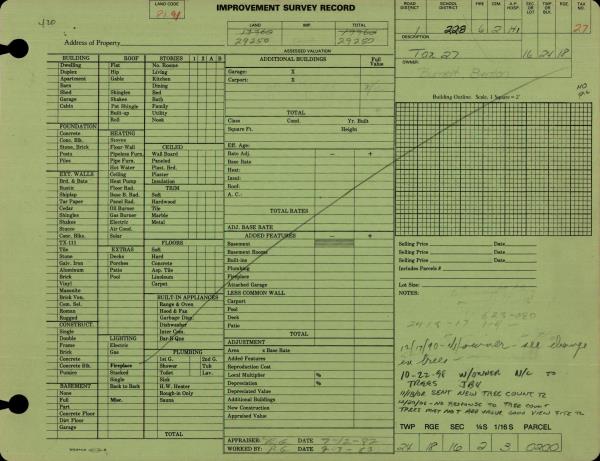 IMPROVEMENT SURVEY RECORD
LAND CODE
LAND
IMP.
TOTAL
29250
29250
ROAD DISTRICT
SCHOOL DISTRICT
FIRE
CEM.
A.P. HOSP.
SEC. OR LOT
TWP. OR BLK.
RGE.
TAX NO.
228 6 2 H1
27
DESCRIPTION
Tax 27
16 24 18
OWNER:
Address of Property
ASSESSED VALUATION
BUILDING
Dwelling
Duplex
Apartment
Barn
Shed
Garage
Cabin
ROOF
Flat
Hip
Gable
Shingles
Shakes
Pat Shingle
Built-up
Roll
STORIES
1 2 A B
No. Rooms
Living
Kitchen
Dining
Bed
Bath
Family
Utility
Nook
FOUNDATION
Concrete
Conc. Blk.
Stone, Brick
Posts
Piles
HEATING
Stoves
Floor-Wall
Pipeless Furn.
Pipe Furn.
Hot Water
Ceiling
Heat Pump
Floor Rad.
Base B. Rad.
Panel Rad.
Oil Burner
Gas Burner
Electric
Air Cond.
Solar
CEILED
Wall Board
Paneled
Plast. Brd.
Plaster
Insulation
EXT. WALLS
Brd. & Bats
Rustic
Shiplap
Tar Paper
Cedar
Shingles
Shakes
Stucco
Conc. Blks.
TX-111
Tile
Stone
Galv. Iron
Aluminum
Brick
Vinyl
Masonite
Brick Ven.
Com. Sel.
Roman
Rugged
TRIM
Soft
Hardwood
Tile
Marble
Metal
FLOORS
Soft
Hard
Concrete
Asp. Tile
Linoleum
Carpet
EXTRAS
Decks
Porches
Patio
Pool
BUILT-IN APPLIANCES
Range & Oven
Hood & Fan
Garbage Disp.
Dishwasher
Inter Com.
Bar-B-Que
CONSTRUCT.
Single
Double
Frame
Brick
Concrete
Concrete Blk.
Pumice
LIGHTING
Electric
Gas
Fireplace
Stacked
Single
Back to Back
Misc.
PLUMBING
1st G.
2nd G.
Shower
Tub
Toilet
Lav.
Sink
H.W. Heater
Rough-in Only
Sauna
BASEMENT
None
Full
Part
Concrete Floor
Dirt Floor
Garage
TOTAL
ADDITIONAL BUILDINGS
Full Value
Garage: X
Carport: X
TOTAL
Class
Cond.
Yr. Built
Square Ft.
Height
Eff. Age:
Rate Adj. – +
Base Rate
Heat:
Insul:
Roof:
A. C.:
TOTAL RATES
ADJ. BASE RATE
ADDED FEATURES – +
Basement
Basement Rooms
Built-ins
Plumbing
Fireplace
Attached Garage
LESS COMMON WALL
Carport
Pool
Deck
Patio
TOTAL
ADJUSTMENT
Area x Base Rate
Added Features
Reproduction Cost
Local Multiplier %
Depreciation %
Depreciated Value
Additional Buildings
New Construction
Appraised Value
APPRAISER: DATE
WORKED BY: DATE
Building Outline. Scale, 1 Square = 2'
Selling Price Date
Selling Price Date
Selling Price Date
Includes Parcels #
Lot Size:
NOTES:
10-22-98 W/OWNER N/C TO
TREES JBY
SENT NEW TREE COUNT
NO RESPONSE TO TREE COUNT
TREES MAY NOT ADD VALUE GOOD VIEW SITE
TWP RGE SEC ¼S 1/16S PARCEL
24 18 16 2 3 0200